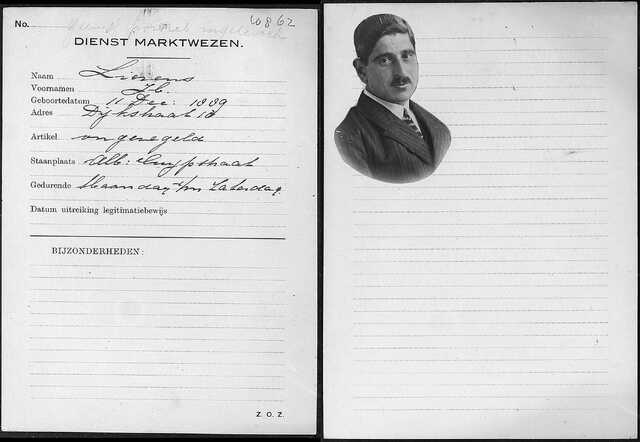 No.
10862
DIENST MARKTWEZEN.
Naam Lierens
Voornamen Jb.
Geboortedatum 11 Dec: 1889
Adres Dijkstraat 18
Artikel ongeregeld
Staanplaats Alb: Cuypstraat
Gedurende Maandag t/m Zaterdag
Datum uitreiking legitimatiebewijs
BIJZONDERHEDEN:
Z. O. Z.